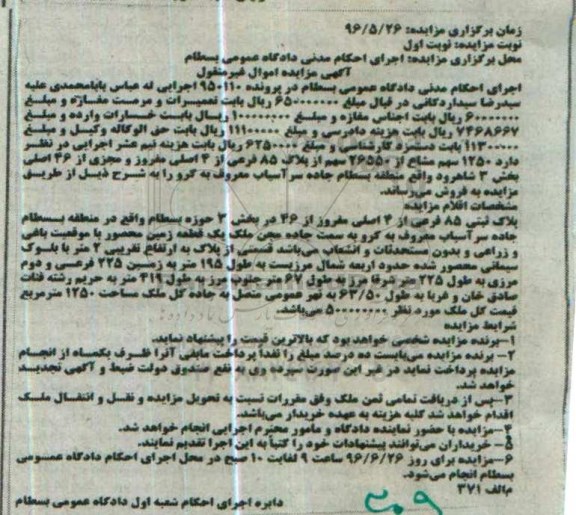 زمان برگزاری مزایده: ۹۶/۵/۲۶
نوبت مزایده: نوبت اول
محل برگزاری مزایده: اجرای احکام مدنی دادگاه عمومی بسطام
آگهی مزایده اموال غیرمنقول
اجرای احکام مدنی دادگاه عمومی بسطام در پرونده ۹۵۰۱۱۰ اجرایی له عباس بابامحمدی علیه
سیدرضا سیداردکانی در قبال مبلغ ۶۵۰۰۰۰۰۰۰ ریال بابت تعمیرات و مرمت مغازه و مبلغ
ریال بابت اجناس مغازه و مبلغ ریال بابت خسارات وارده و مبلغ
۷۴۶۸۶۶۷ ریال بابت هزینه دادرسی و مبلغ ۱۱۱۰۰۰۰۰ ریال بابت حق الوکاله وکیل و مبلغ
بابت دستمزد کارشناسی و مبلغ ۶۲۵۰۰۰۰۰ ریال بابت هزینه نیم عشر اجرایی در نظر
دارد ۱۲۵۰ سهم مشاع از ۲۶۵۵۰ سهم از پلاک ۸۵ فرعی از ۴ اصلی مفروز و مجزی از ۴۶ اصلی
بخش ۳ شاهرود واقع منطقه بسطام جاده سرآسیاب معروف به گرو را به شرح ذیل از طریق
مزایده به فروش می‌رساند.
مشخصات اقلام مزایده
پلاک ثبتی ۸۵ فرعی از ۴ اصلی مفروز از ۴۶ در بخش ۳ حوزه بسطام واقع در منطقه بسطام
جاده سرآسیاب معروف به گرو به سمت جاده مجن ملک یک قطعه زمین محصور با موقعیت باغی
و زراعی و بدون مستحدثات و انشعاب می‌باشد قسمتی از پلاک به ارتفاع تقریبی ۲ متر با بلوک
سیمانی محصور شده حدود اربعه شمال مرزیست به طول ۱۹۵ متر به زمین ۲۲۵ فرعی و دوم
مرزی به طول ۲۲۵ متر شرقا مرز به طول متر جنوب مرز به طول ۴۱۹ متر به حریم رشته قنات
صادق خان و غربا به طول ۶۳/۵۰ به نهر عمومی متصل به جاده کل ملک مساحت ۱۲۵۰ مترمربع
قیمت کل ملک مورد نظر ۵۰۰۰۰۰۰۰۰ می‌باشد.
شرایط مزایده
۱-برنده مزایده شخصی خواهد بود که بالاترین قیمت را پیشنهاد نماید.
۲- برنده مزایده می‌بایست ده درصد مبلغ را نقداً پرداخت مابقی آنرا ظرف یکماه از انجام
مزایده پرداخت نماید در غیر این صورت سپرده وی به نفع صندوق دولت ضبط و آگهی تجدید
خواهد شد.
۳-پس از دریافت تمامی ثمن ملک وفق مقررات نسبت به تحویل مزایده و نقل و انتقال ملک
اقدام خواهد شد کلیه هزینه به عهده خریدار می‌باشد.
۴-مزایده با حضور نماینده دادگاه و مامور محترم اجرایی انجام خواهد شد.
۵- خریداران می‌توانند پیشنهادات خود را کتباً به این اجرا تقدیم نمایند.
۶-مزایده برای روز ۹۶/۶/۲۶ ساعت ۹ لغایت ۱۰ صبح در محل اجرای احکام دادگاه عمومی
بسطام انجام می‌شود.
م‌الف ۳۷۱
دایره اجرای احکام شعبه اول دادگاه عمومی بسطام
۲۰۹